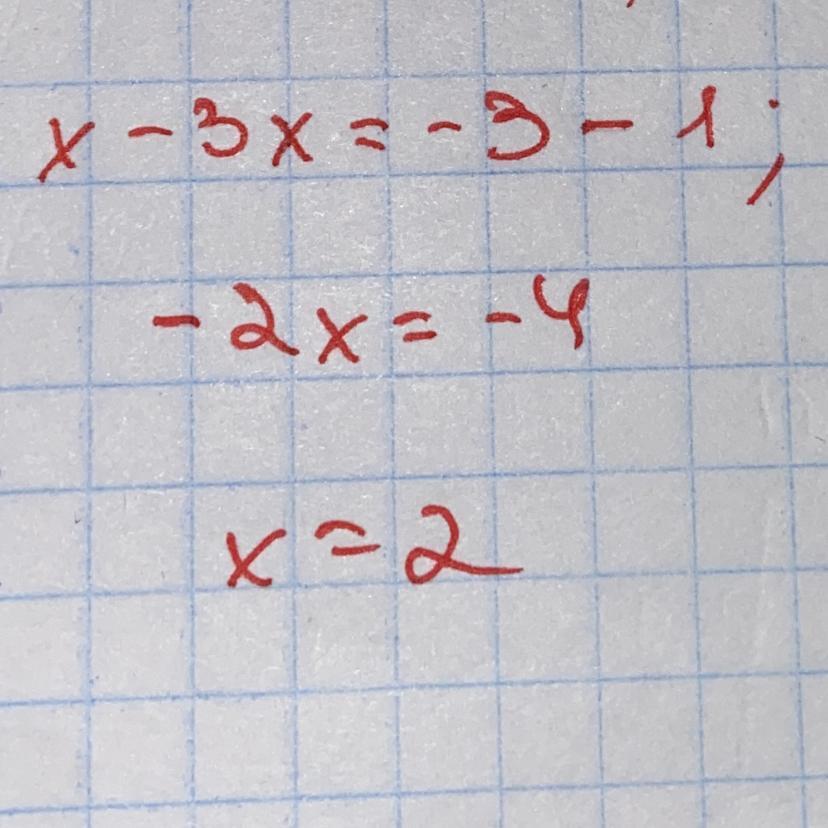 x - 3x = -3 - 1;
-2x = -4
x = 2